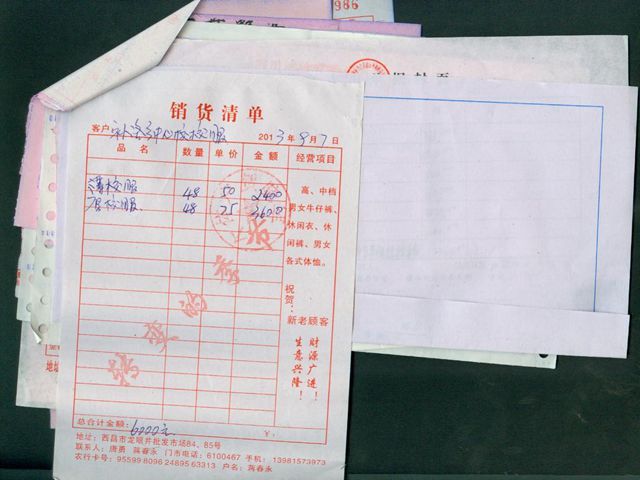 986
销货清单
客户 中心校校服 2013年9月7日
品名 数量 单价 金额 经营项目
薄校服 48 50 2400
厚校服 48 75 3600
高、中档
男女牛仔裤、
休闲衣、休
闲裤、男女
各式体恤。
祝贺：
新老顾客
生意兴隆！
财源广进！
总合计金额：6000元 ￥：
地址：西昌市龙眼井批发市场84、85号
联系人：唐勇 蒋春永 门市电话：6100467 手机：13981573973
农行卡号：95599 8096 24895 63313 户名：蒋春永